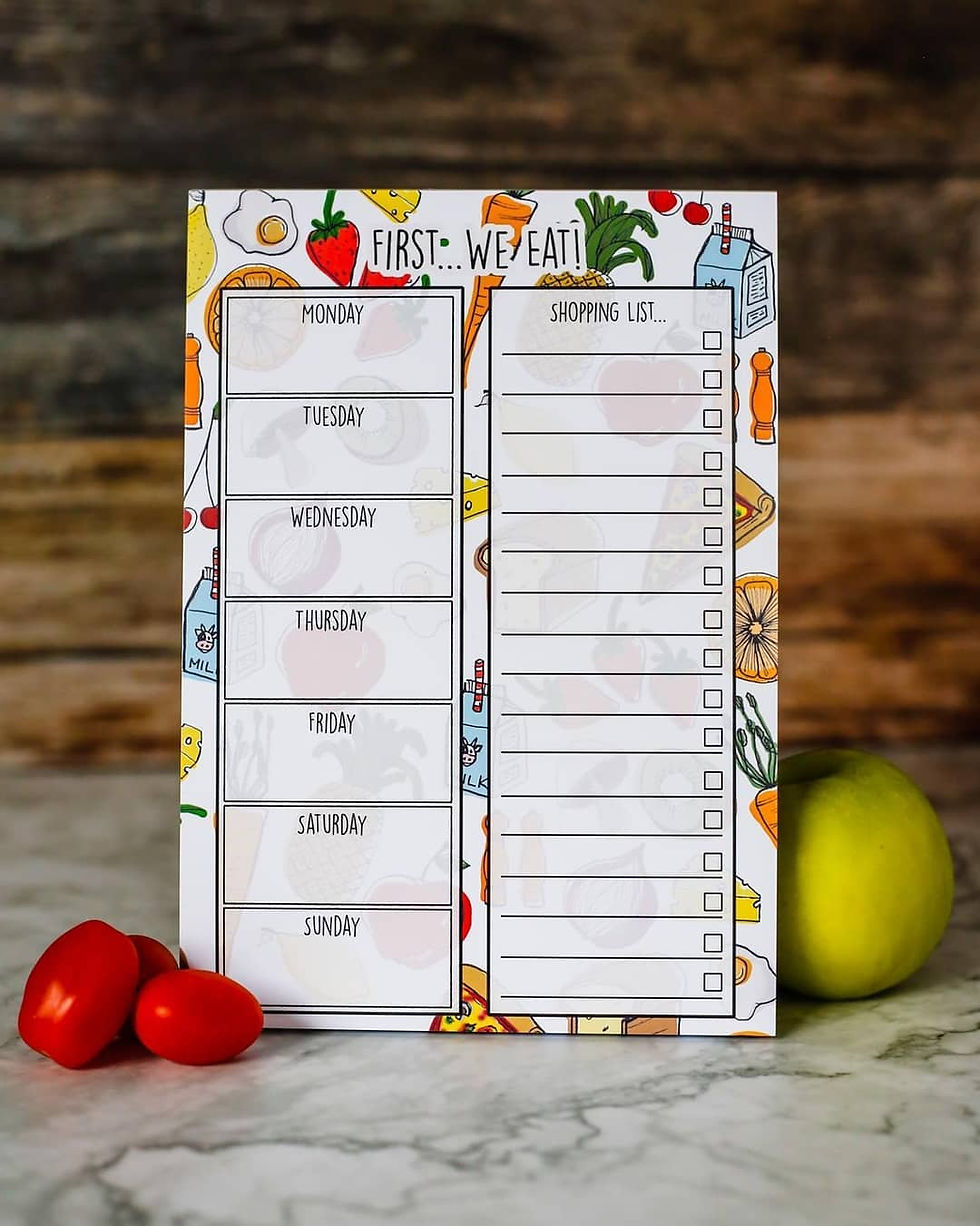 FIRST... WE EAT!
MONDAY
TUESDAY
WEDNESDAY
THURSDAY
FRIDAY
SATURDAY
SUNDAY
SHOPPING LIST...
MIL
LK